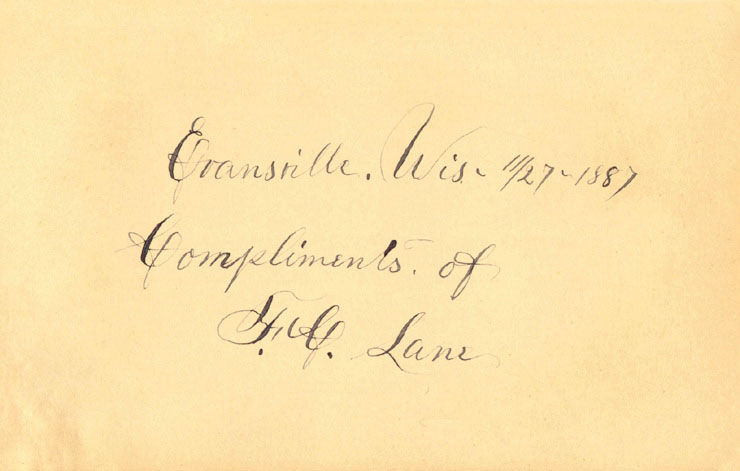 Evansville. Wis~ 11/27~1887
Compliments. of
F. C. Lane